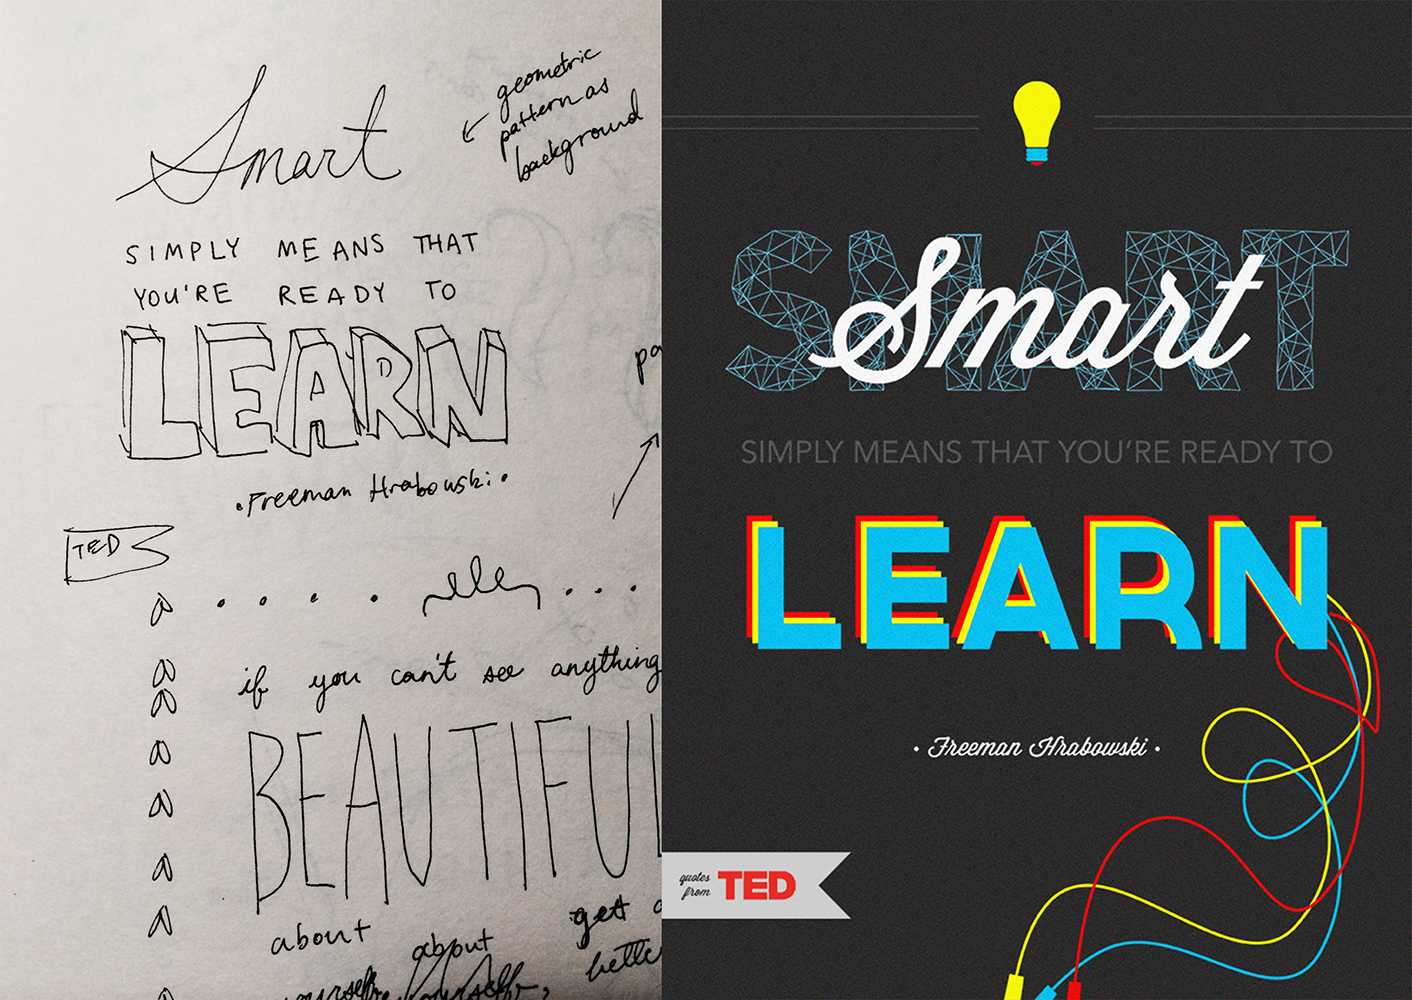 Smart
geometric
pattern as
background
SIMPLY MEANS THAT
YOU'RE READY TO
LEARN
•Freeman Hrabowski•
TED
if you can't see anything
BEAUTIFUL
about about get
yourself yourself, bette
SMART
Smart
SIMPLY MEANS THAT YOU'RE READY TO
LEARN
• Freeman Hrabowski •
quotes
from
TED